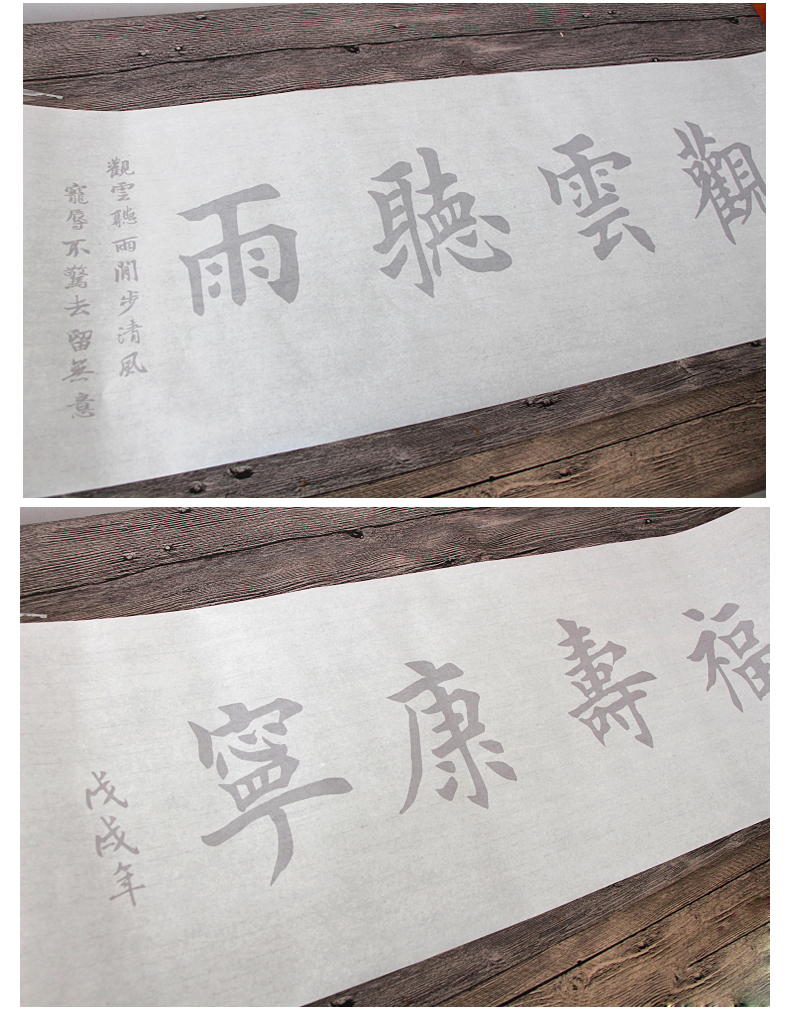 觀雲聽雨
觀雲聽雨閒步清風
寵辱不驚去留無意
福壽康寧
戊戌年